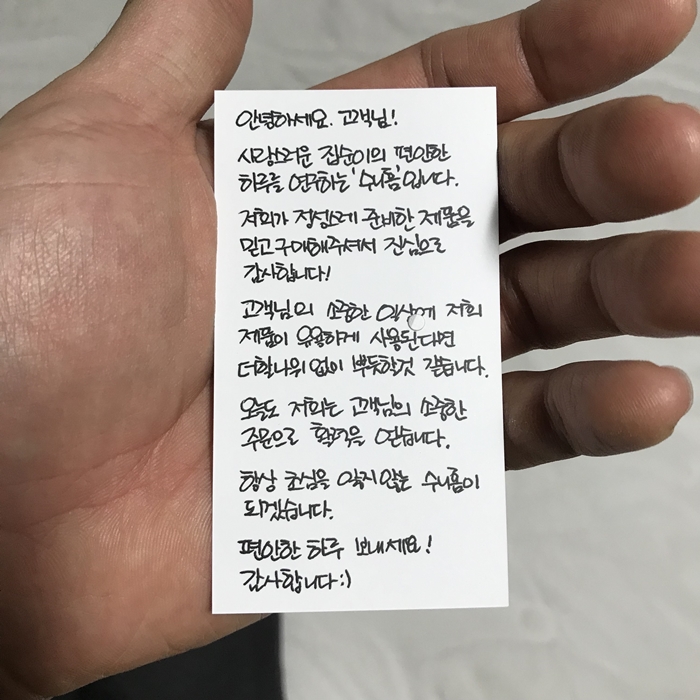 안녕하세요. 고객님!
사랑스러운 집순이의 편안한
하루를 연구하는 '수니홈'입니다.
저희가 정성스레 준비한 제품을
믿고 구매해주셔서 진심으로
감사합니다!
고객님의 소중한 일상에 저희
제품이 유용하게 사용된다면
더할나위 없이 뿌듯할것 같습니다.
오늘도 저희는 고객님의 소중한
주문으로 활력을 얻습니다.
항상 초심을 잃지 않는 수니홈이
되겠습니다.
편안한 하루 보내세요!
감사합니다:)